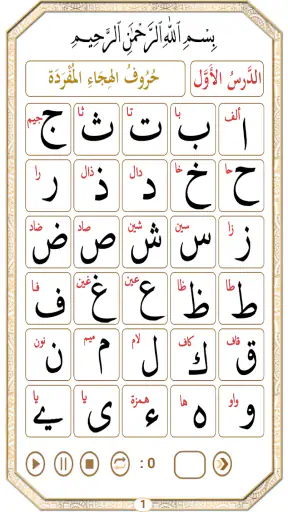 بِسْمِ اللَّهِ الرَّحْمَٰنِ الرَّحِيمِ
الدَّرسُ الأَوَّل حُرُوفُ الهِجَاءِ المُفْرَدَة
ألف ا با ب تا ت ثا ث جيم ج
حا ح خا خ دال د ذال ذ را ر
زا ز سين س شين ش صاد ص ضاد ض
طا ط ظا ظ عين ع غين غ فا ف
قاف ق كاف ك لام ل ميم م نون ن
واو و ها ه همزة ء يا ى يا ے
0 :
1